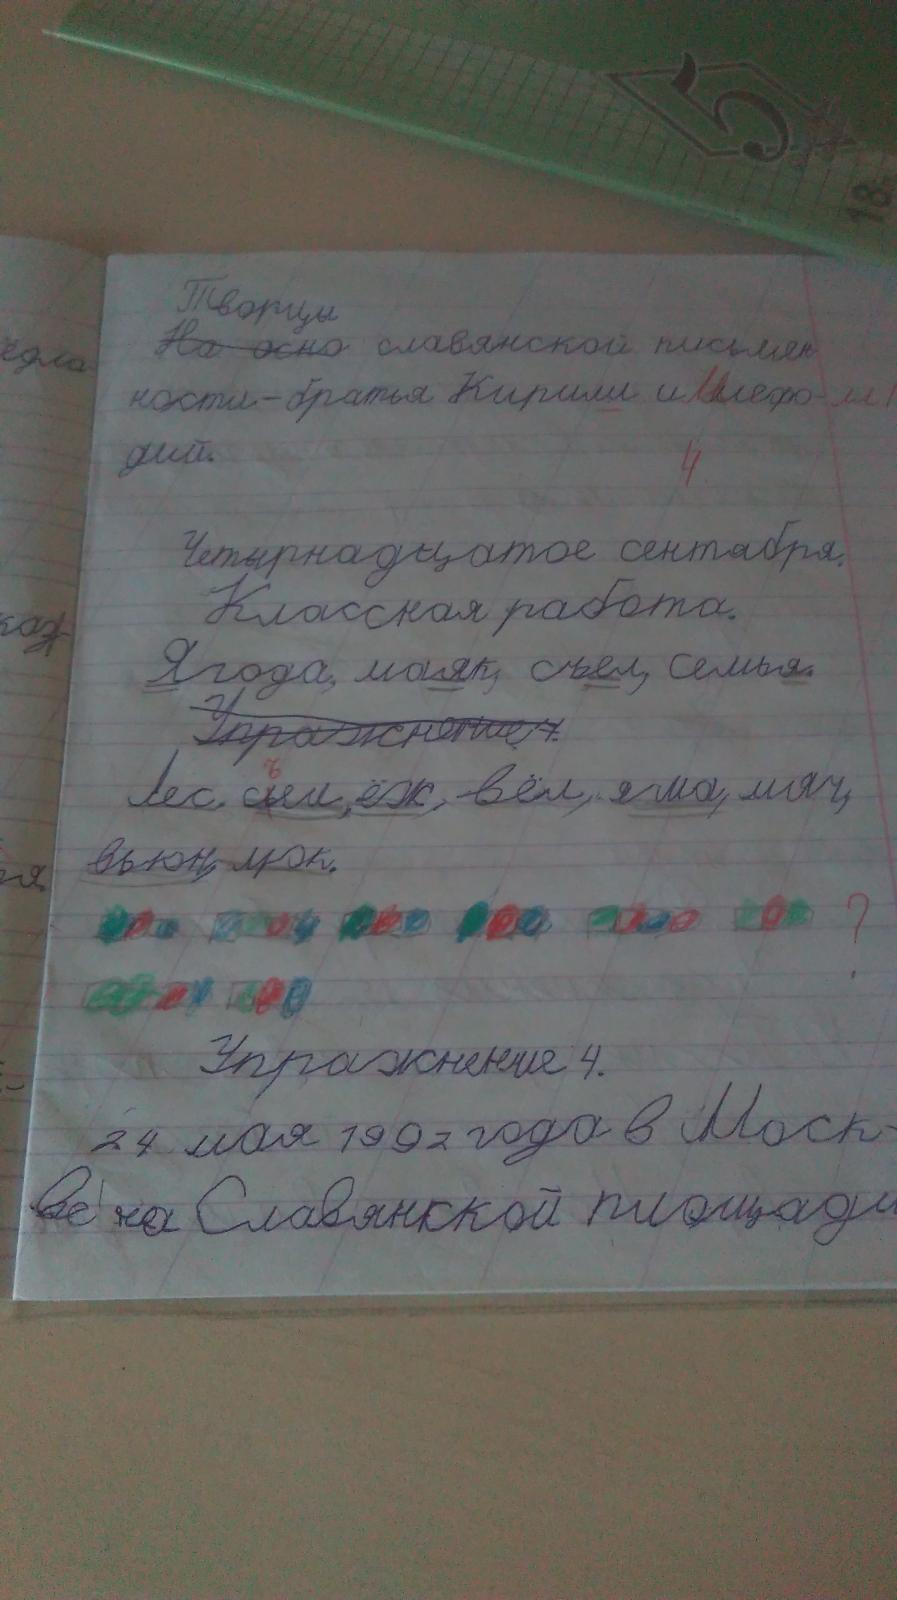 5
18
Творцы
На осно славянской письмен
ности - братья Кирилл и Мефо-
дий.
4
Четырнадцатое сентября.
Классная работа.
Ягода, маяк, съел, семья.
Упражнение
Лес, съел, ёж, вёл, яма, мяч,
вьюн, люк.
?
Упражнение 4.
24 мая 1992 года в Моск-
ве на Славянкской площади